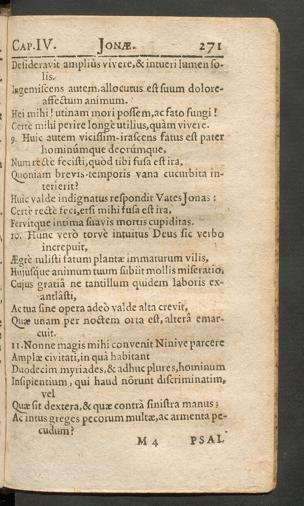 CAP.IV. JONÆ. 271
Desideravit ampliùs vivere,& intueri lumen so-
lis.
Ingemiscens autem,allocutus est suum dolore-
affectum animum.
Hei mihi! utinam mori possem,ac fato fungi!
Certè mihi perire longè utilius,quàm vivere.
9. Huic autem vicissim-irascens fatus est pater
hominúmque deorúmque,
Num rectè fecisti,quòd tibi fusa est ira,
Quoniam brevis-temporis vana cucurbita in-
terierit?
Huic valde indignatus respondit Vates Jonas:
Certè rectè feci,etsi mihi fusa est ira,
Fervitque intima suavis mortis cupiditas.
10. Hunc verò torvè intuitus Deus sic verbo
increpuit,
Ægrè tulisti fatum plantæ immaturum vilis,
Hujusque animum tuum subiit mollis miseratio,
Cujus gratiâ ne tantillum quidem laboris ex-
antlâsti,
Ac tua sine opera adeò valde alta crevit,
Quæ unam per noctem orta est, alterâ emar-
cuit.
11. Nonne magis mihi convenit Ninive parcere
Amplæ civitati,in quâ habitant
Duodecim myriades,& adhuc plures,hominum
Insipientium, qui haud nôrunt discriminatim,
vel
Quæ sit dextera,& quæ contrà sinistra manus;
Ac intus greges pecorum multæ,ac armenta pe-
cudum?
M 4 PSAL